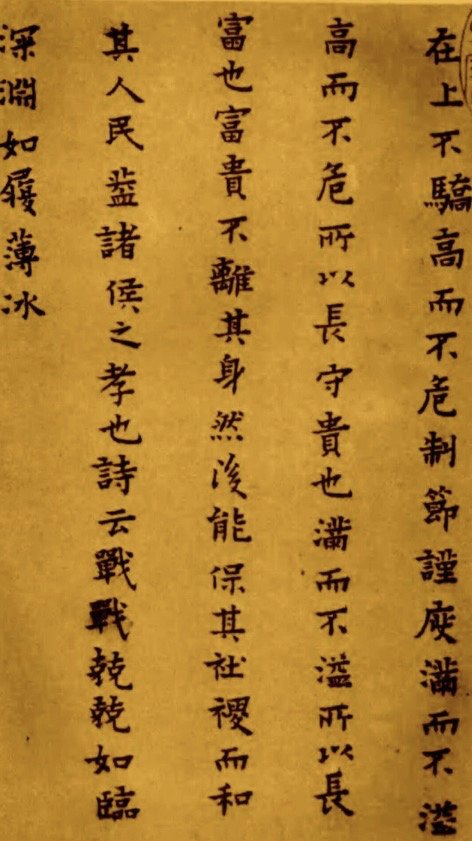 在上不驕高而不危制節謹度滿而不溢
高而不危所以長守貴也滿而不溢所以長
富也富貴不離其身然後能保其社稷而和
其人民葢諸侯之孝也詩云戰戰兢兢如臨
深淵如履薄冰